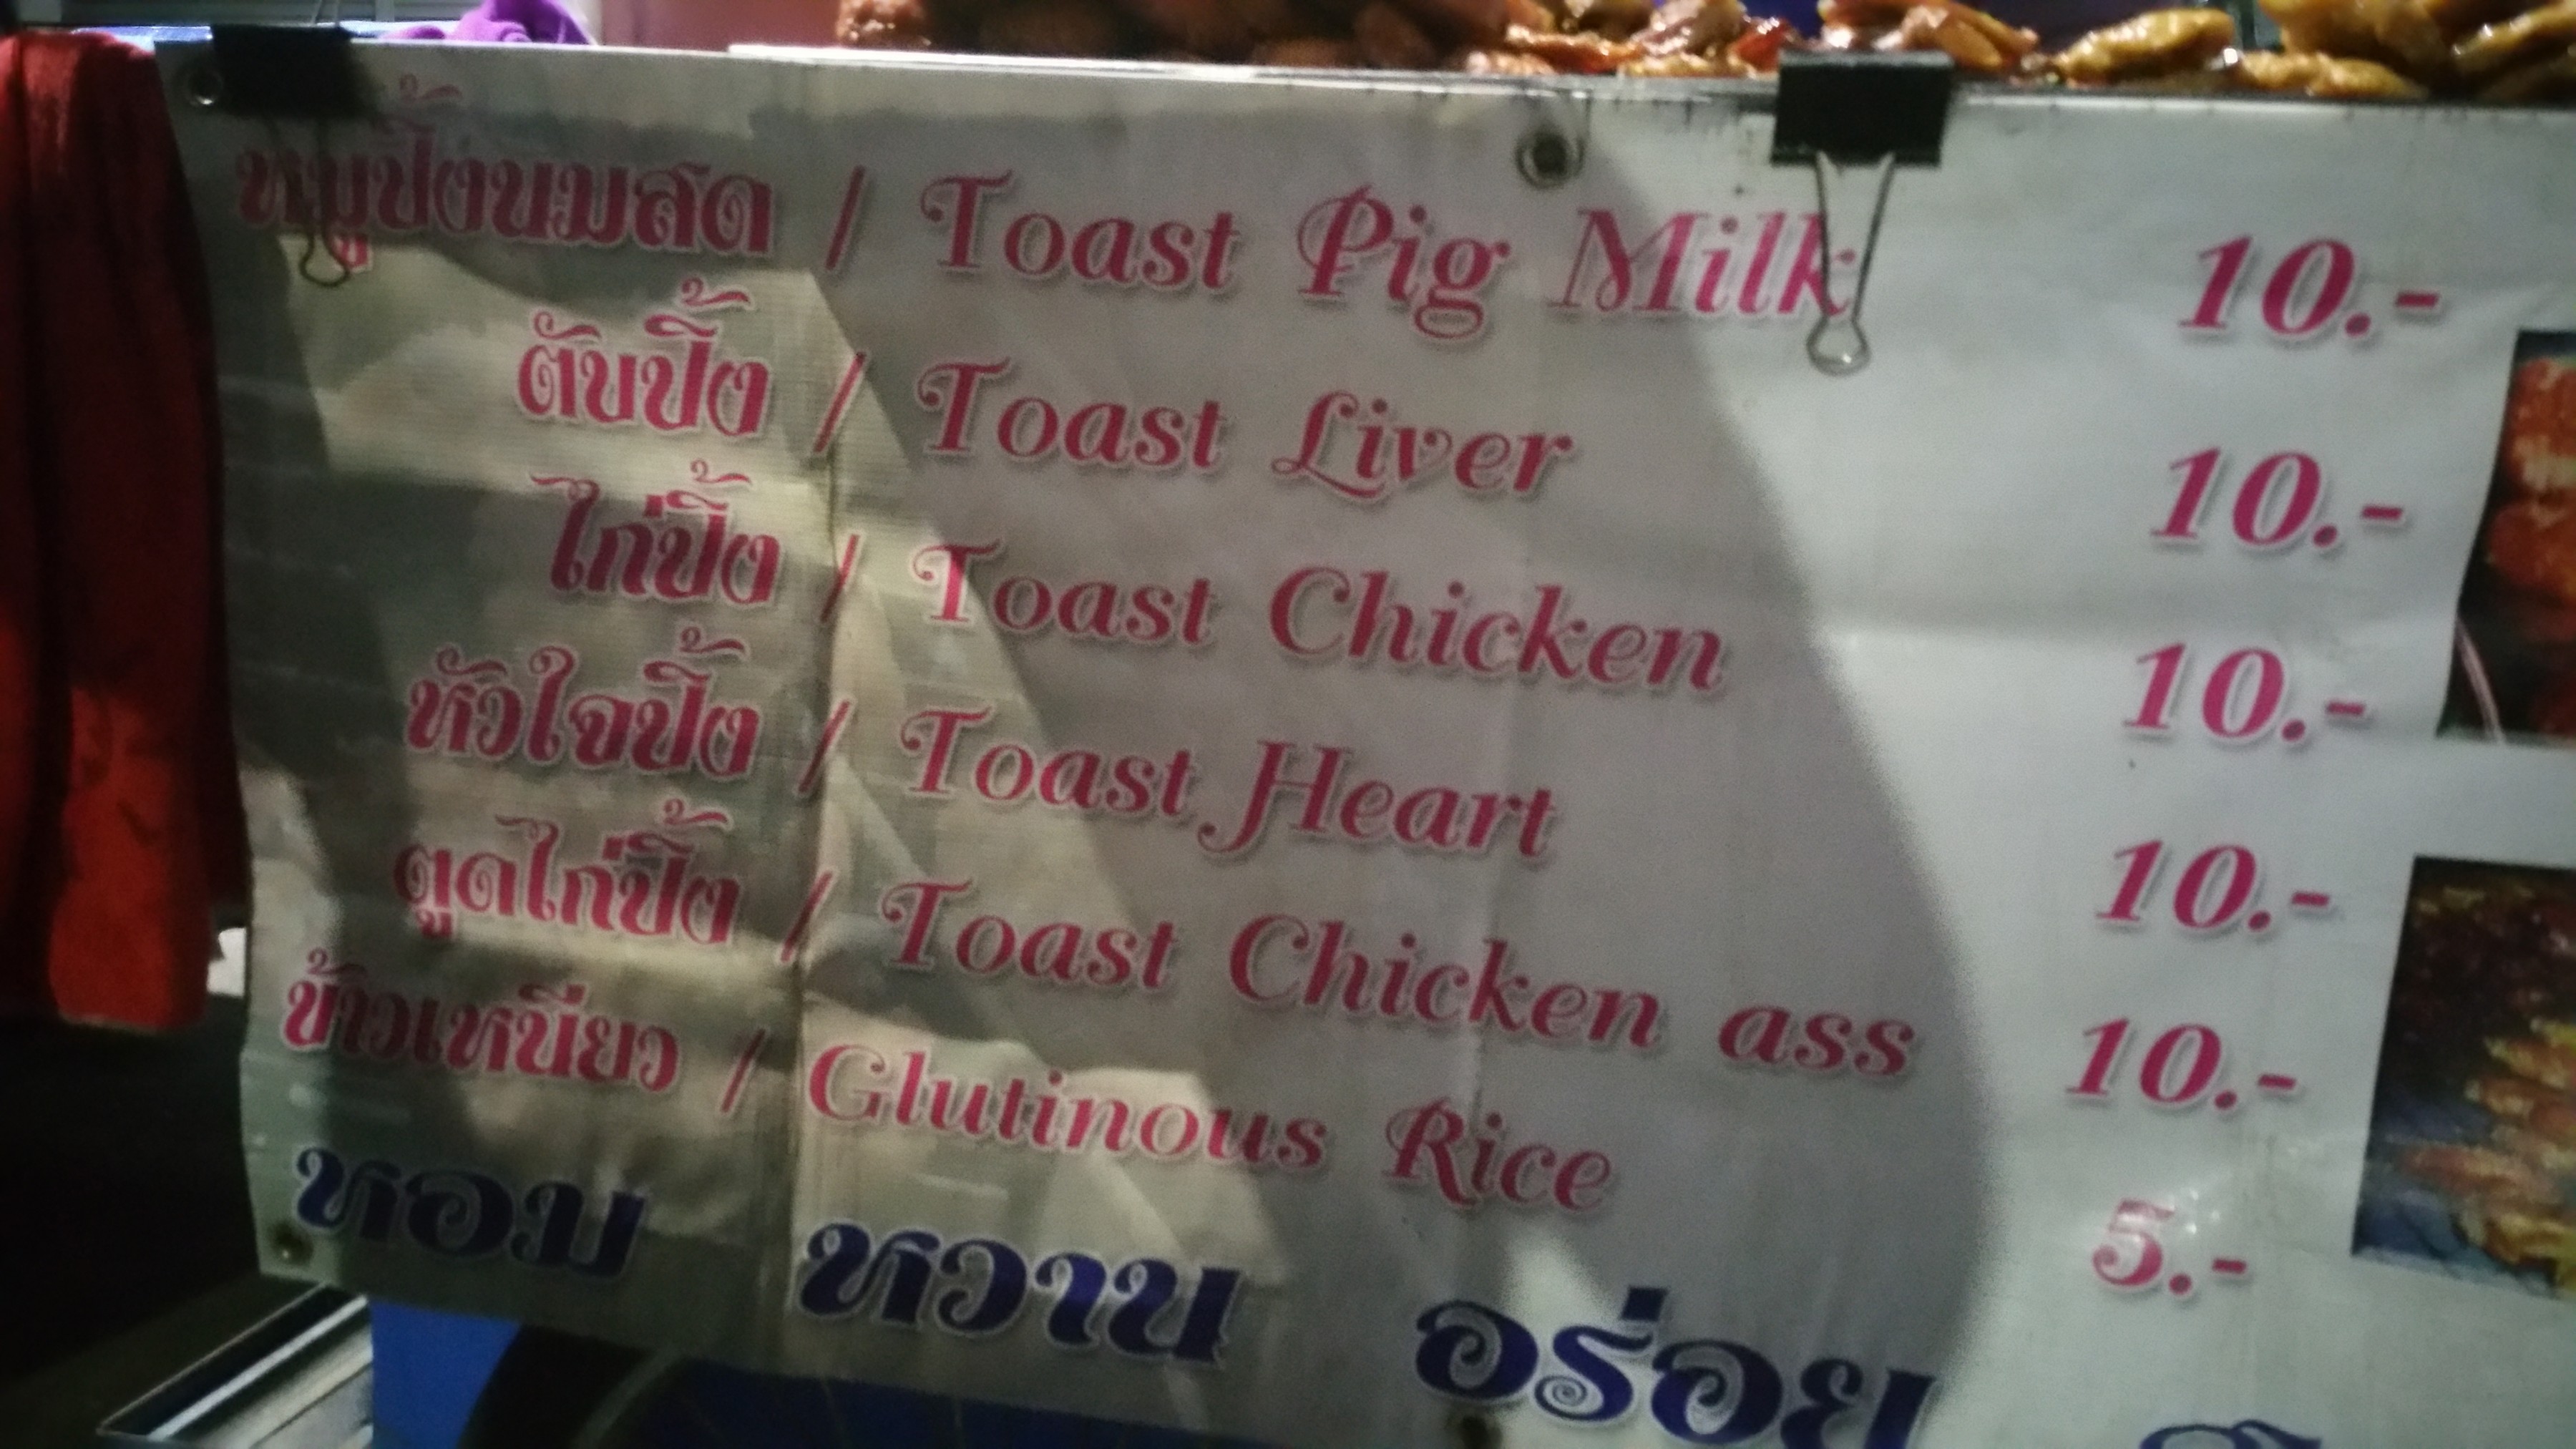 หมูปิ้งนมสด / Toast Pig Milk 10.-
ตับปิ้ง / Toast Liver 10.-
ไก่ปิ้ง / Toast Chicken 10.-
หัวใจปิ้ง / Toast Heart 10.-
ตูดไก่ปิ้ง / Toast Chicken ass 10.-
ข้าวเหนียว / Glutinous Rice 5.-
หอม หวาน อร่อย